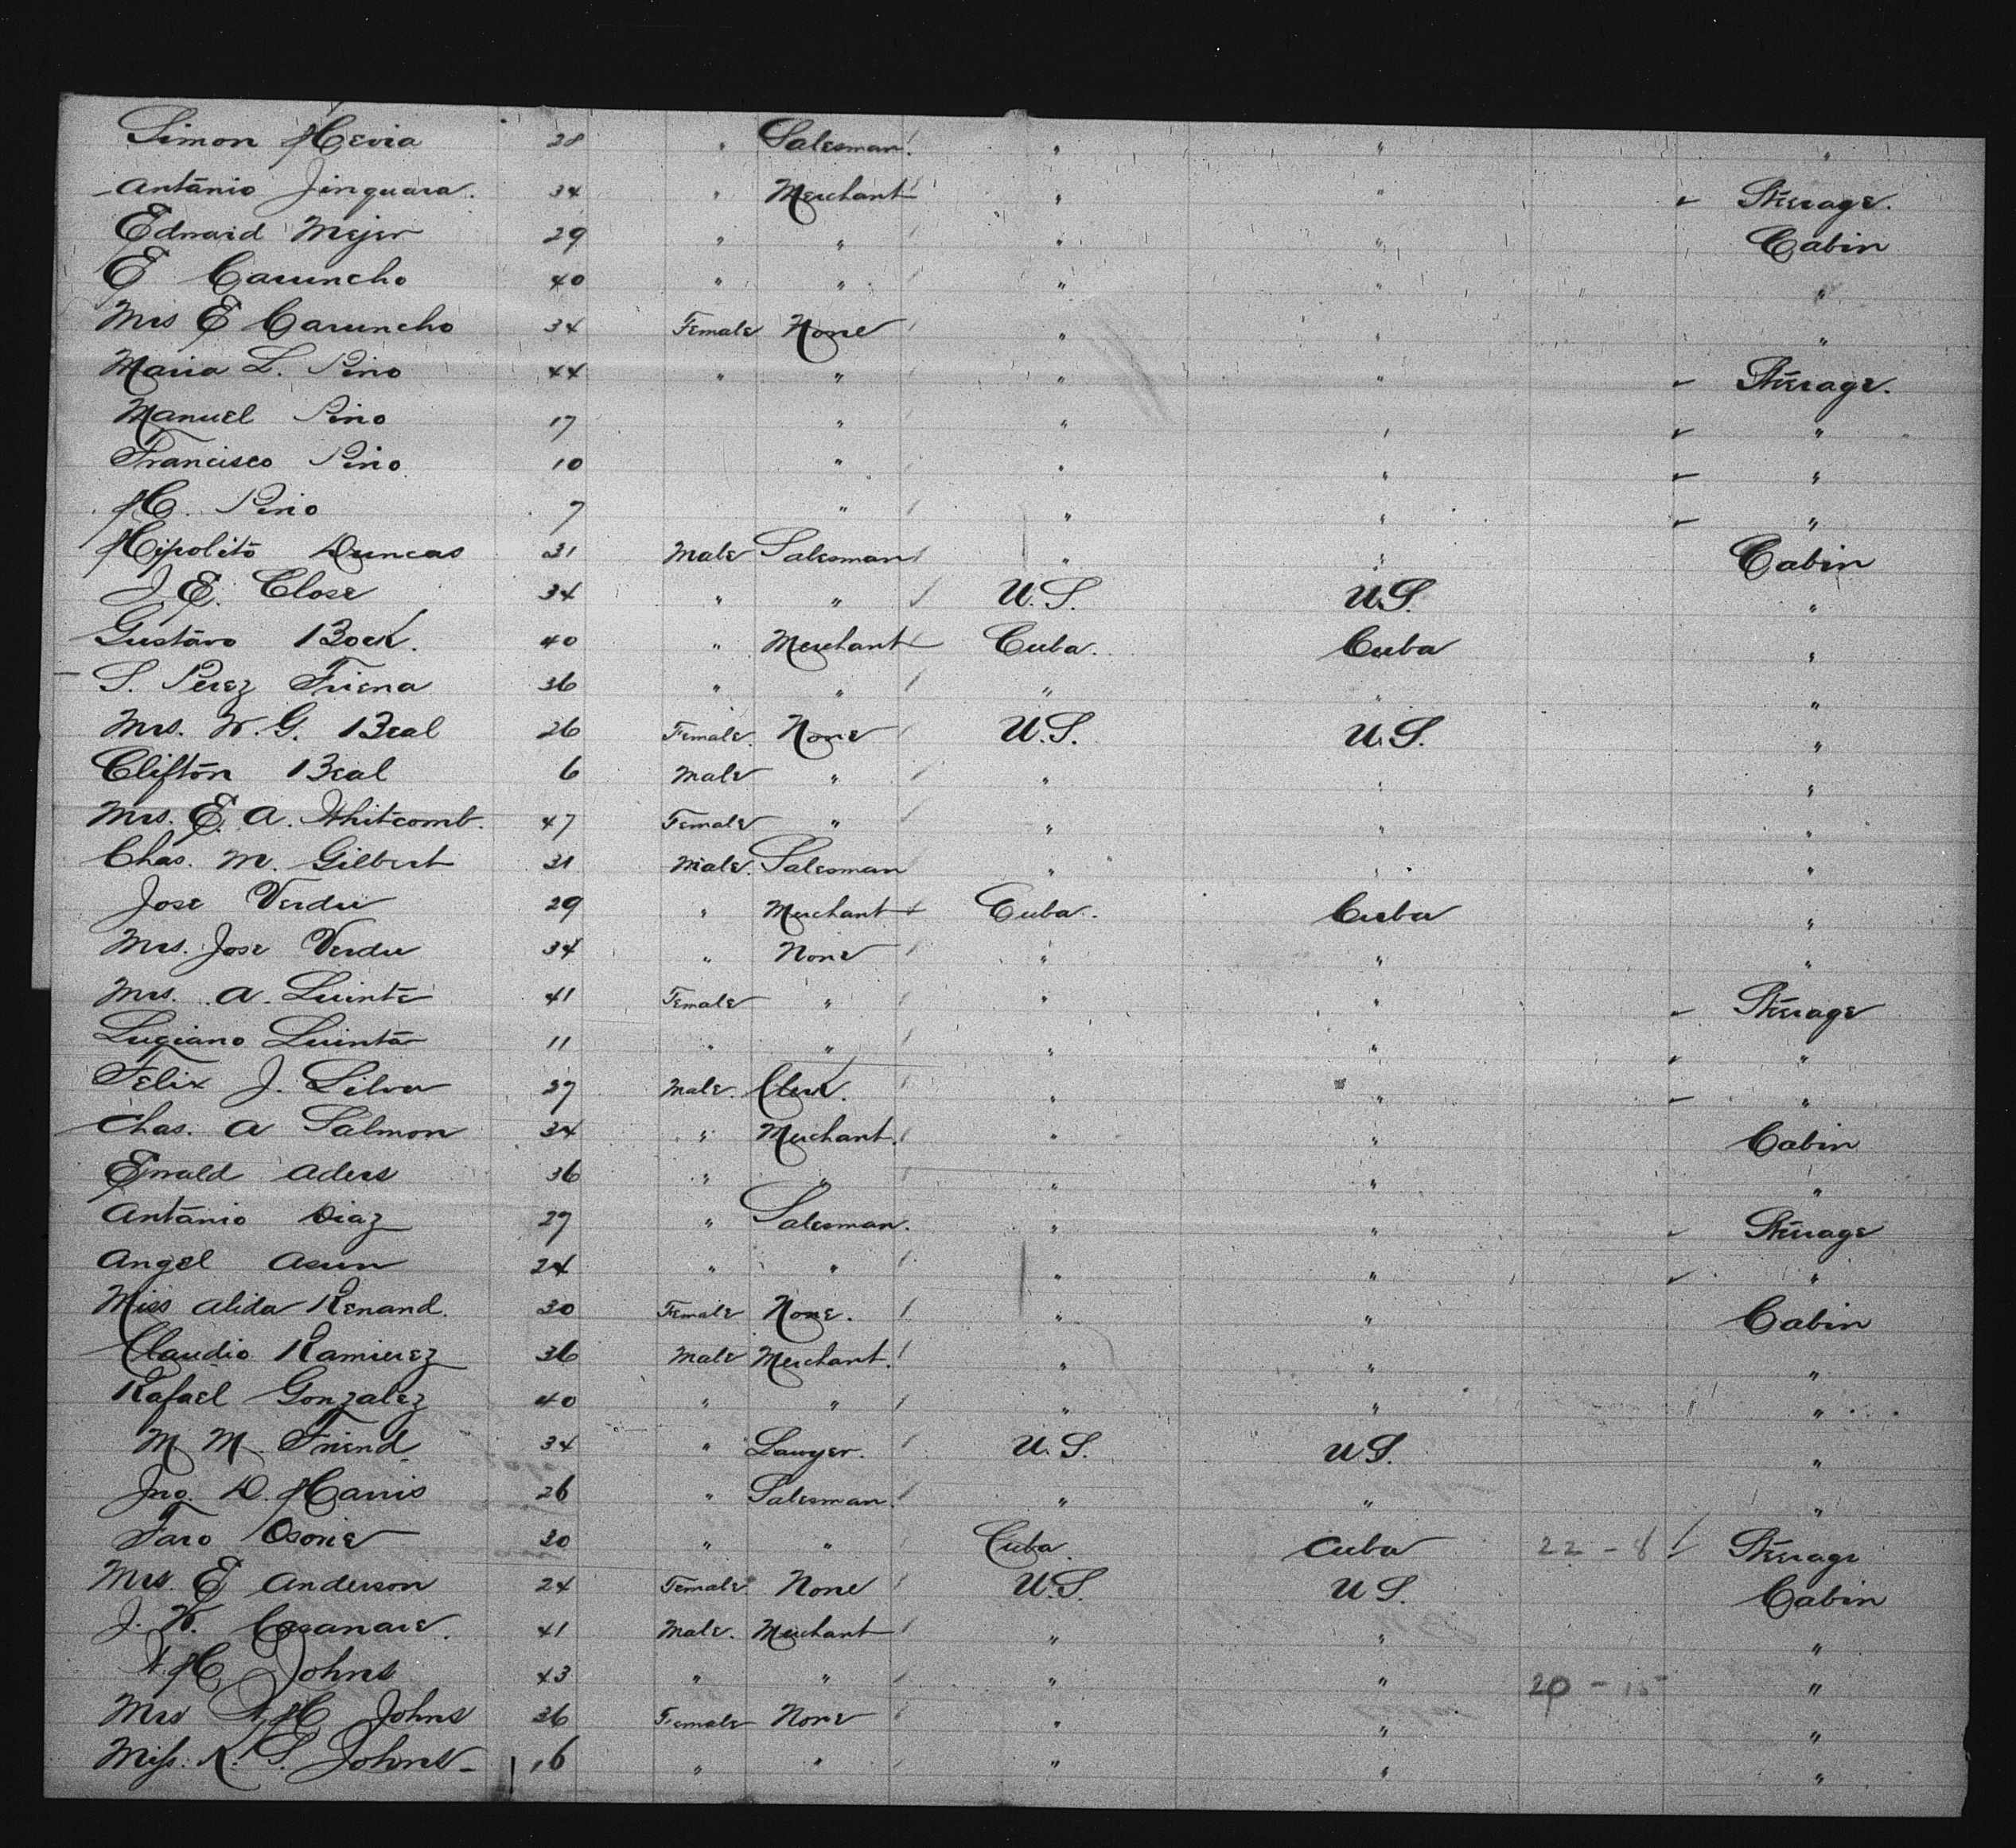 Simon Hevia 28 " Salesman " " "
Antonio Jinguara. 34 " Merchant " " ✓ Steerage.
Edward Mejer 29 " " " " Cabin
E Caruncho 40 " " " " "
Mrs E Caruncho 34 Female None " " "
Maria L. Pino 44 " " " " ✓ Steerage.
Manuel Pino 17 " " " ✓ "
Francisco Pino 10 " " " ✓ "
H. Pino 7 " " " ✓ "
Hipolito Duncas 31 Male Salesman " " Cabin
J. E. Close 34 " " U.S. U.S. "
Gustavo Bock. 40 " Merchant Cuba. Cuba "
S. Perez Triena 36 " " " " "
Mrs. W. G. Beal 26 Female. None U.S. U.S. "
Clifton Beal 6 Male " " " "
Mrs. E. A. Whitcomb. 47 Female " " " "
Chas. M. Gilbert 31 Male. Salesman " " "
Jose Verdu 29 " Merchant Cuba. Cuba "
Mrs. Jose Verdu 34 " None " " "
Mrs. A. Luinta 41 Female " " " ✓ Steerage
Lugiano Luinta 11 " " " " ✓ "
Felix J. Silva 27 Male. Clerk. " " ✓ "
Chas. A Salmon 34 " Merchant. " " Cabin
Ewald Aders 36 " " " " "
Antonio Diaz 27 " Salesman. " " ✓ Steerage
Angel Asun 24 " " " " ✓ "
Miss Alida Renand. 30 Female None. " " Cabin
Claudio Ramirez 36 Male Merchant. " " "
Rafael Gonzalez 40 " " " " "
M M. Friend 34 " Lawyer. U.S. U.S. "
Jno. D. Harris 26 " Salesman. " " "
Faro Osorie 30 " " Cuba. Cuba 22 - 8 ✓ Steerage
Mrs. E Anderson 24 Female None U.S. U.S. Cabin
J. W. Casanare. 41 Male. Merchant " " "
W. H. Johns 43 " " " " 20 - 15 "
Mrs W. H. Johns 36 Female None " " "
Miss. K. S. Johns 16 " " " " "